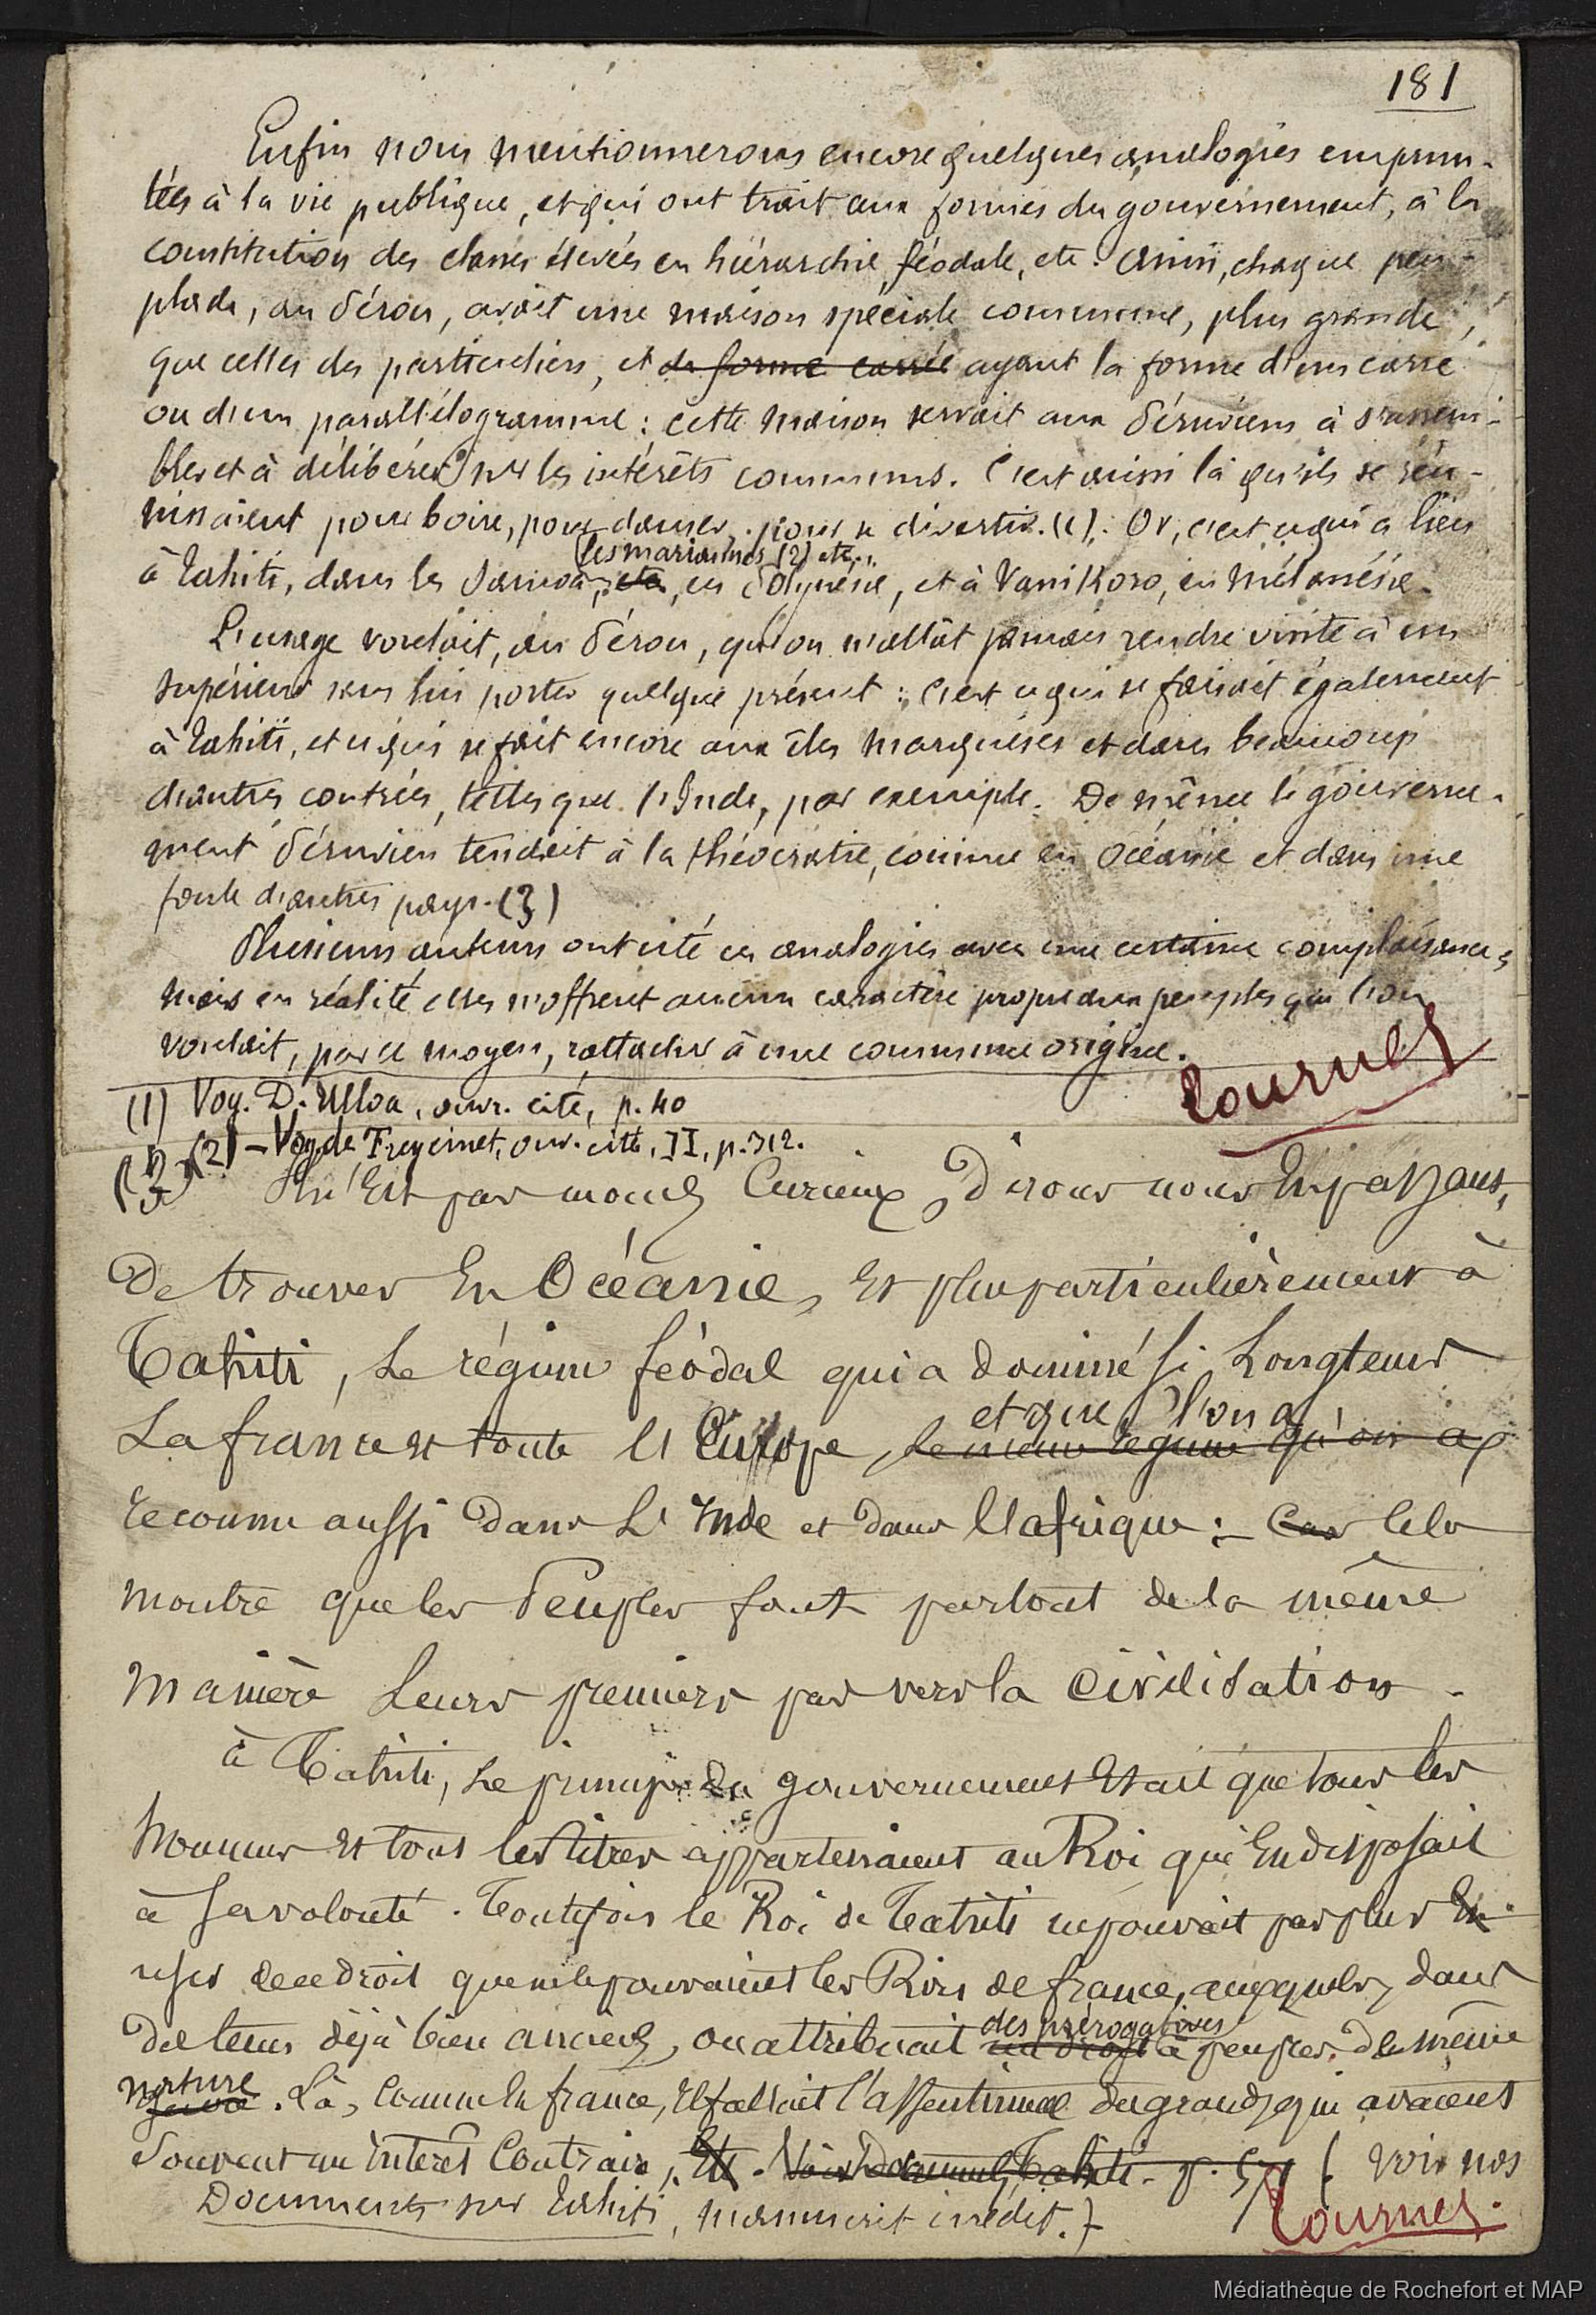 181
Enfin nous mentionnerons encore quelques analogies emprun-
tées à la vie publique, et qui ont trait aux formes du gouvernement, à la
constitution des classes élevées en hiérarchie féodale, etc. Ainsi, chaque peu-
plade, au Pérou, avait une maison spéciale commune, plus grande
que celles des particuliers, et de forme carrée ayant la forme d'un carré
ou d'un parallélogramme : cette maison servait aux Péruviens à s'assem-
bler et à délibérer sur les intérêts communs. C'est aussi là qu'ils se réu-
nissaient pour boire, pour danser, pour se divertir. (1). Or, c'est ce qui a lieu
les mariannes (2) etc.,
à Tahiti, dans les Samoa, etc, en Polynésie, et à Vanikoro, en Mélanésie.
L'usage voulait, au Pérou, qu'on n'allât jamais rendre visite à un
supérieur sans lui porter quelque présent : c'est ce qui se faisait également
à Tahiti, et ce qui se fait encore aux îles Marquises et dans beaucoup
d'autres contrées, telles que l'Inde, par exemple. De même le gouverne-
ment Péruvien tendait à la théocratie, comme en Océanie et dans une
foule d'autres pays. (3)
Plusieurs auteurs ont cité ces analogies avec une certaine complaisance,
mais en réalité elles n'offrent aucun caractère propre aux peuples que l'on
voulait, par ce moyen, rattacher à une commune origine.
tournez
(1) Voy. D. Ulloa, ouvr. cité, p. 40
(2) - Voy. de Freycinet, ouv. cité, II, p. 312.
(3) Il n'est pas moins Curieux, Dirons nous En passant,
De trouver En Océanie, Et plus particulièrement à
Tahiti, Le régime féodal qui a dominé si Longtems
et que l'on a
La france et toute l'Europe, le même régime qu'on a
reconnu aussi Dans L'Inde et dans l'afrique : - Car Cela
montre que les Peuples font partout de la même
manière Leurs premiers pas vers la Civilisation.
à Tahiti, Le principe du gouvernement Etait que tous les
honneurs Et tous les titres appartenaient au Roi qui En disposait
à sa volonté. Toutefois le Roi de Tahiti ne pouvait pas plus En
user de ce droit que ne le pouvaient les Rois de france, auxquels, dans
des prérogatives
Des tems déjà bien anciens, on attribuait un droit à peu près de même
nature
. Là, Comme En france, Il fallait l'assentiment des grands, qui avaient
Souvent un intérêt Contraire, Et. Voir Documens, Tahiti. p. 57 ( Voir nos
Documents sur Tahiti, manuscrit inédit.)
Tournez.
Médiathèque de Rochefort et MAP